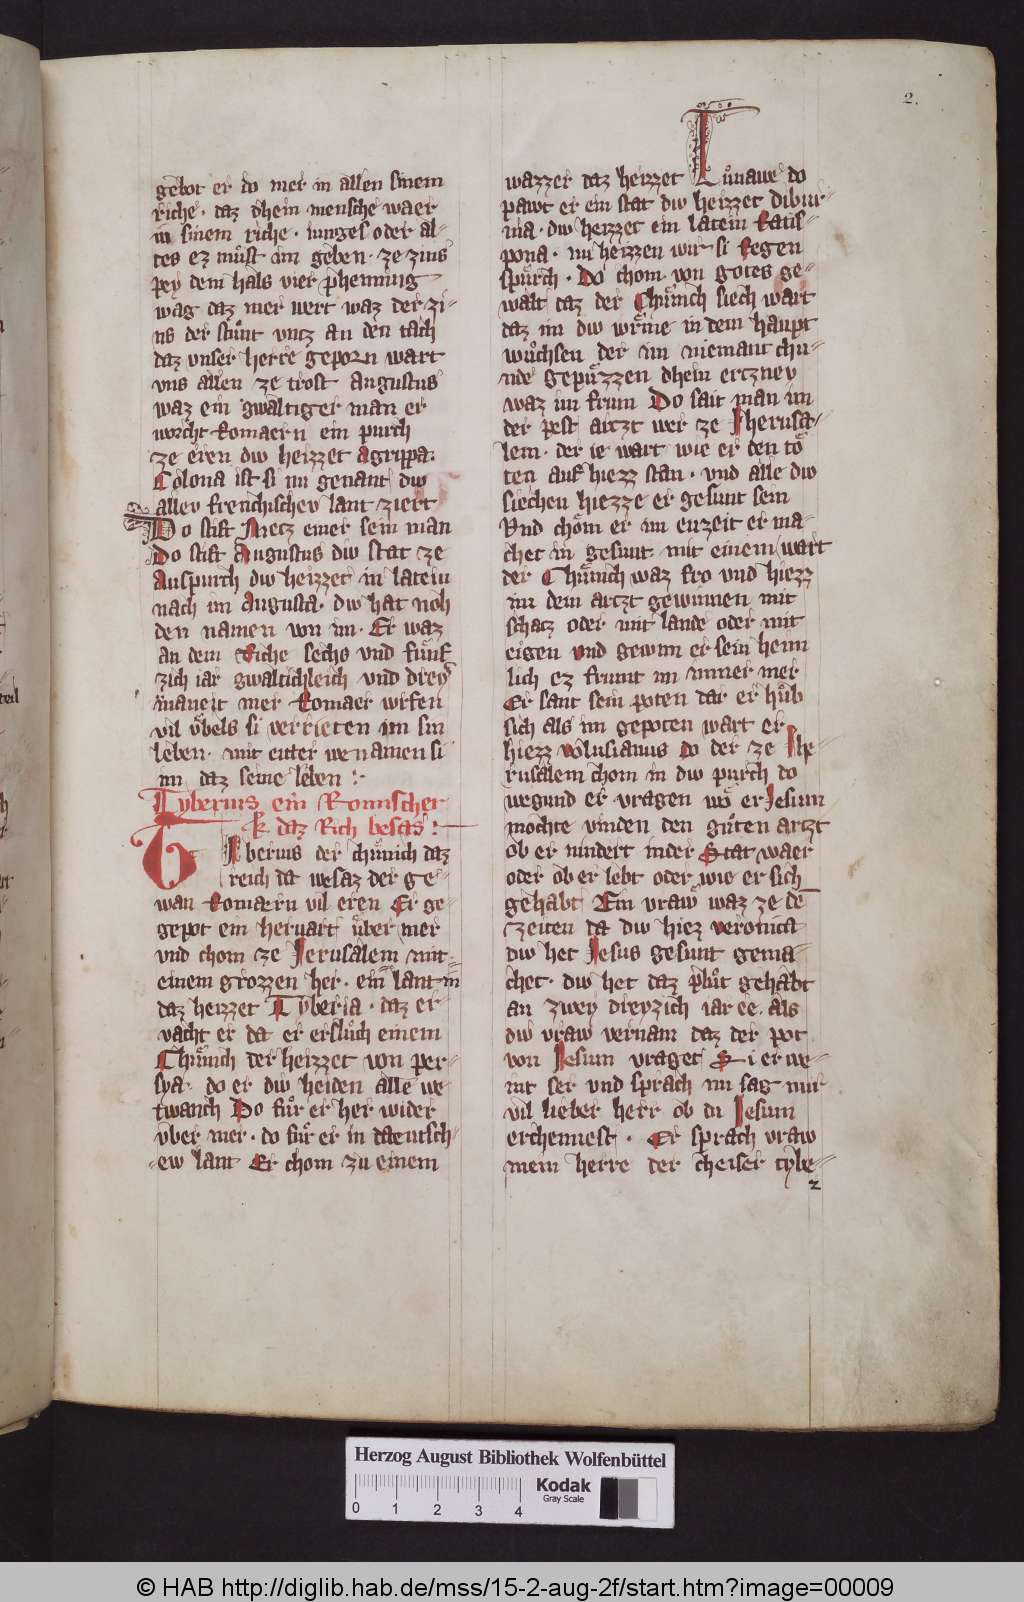 2.
gebot er do mer in allen sinem
riche · daz dhein mensche waer
in sinem riche · iunges oder al-
tes ez můst im geben · ze zins
pey dem hals vier phenning
wag daz mer wert waz der zi-
ns der stůnt vntz an den tach
daz vnser herre geporn wart
vns allen ze trost Augustus
waz ein gwaltiger man er
worcht Romaern ein purch
ze eren diw heizzet Agrippa
Colona ist si nu genant diw
aller frenchischev lant ziert
Do stift Metz einer sein man
Do stift Augustus diw stat ze
Auspurch diw heizzet in latein
nach im Augusta · diw hat noh
den namen von im · Er waz
an dem Riche sechs vnd fünf
zich iar gwaltichleich vnd drey
maneit mer Romaer wrfen
vil vbels si verrieten im sin
leben · mit eitter we namen si
im daz seine leben :·
Tyberius ein Romischer
k daz Rich besas :
Tyberius der chünich daz
reich da wesaz der ge-
wan Romærn vil eren Er ge-
gepot ein hervart über mer
vnd chom ze Jerusalem mit
einem grozzen her · ein lant in
daz heizzet Tyberia · daz er
vacht er da er ersluch einem
Chünich der heizzet von per-
sya · do er diw heiden alle we
twanch Do fuor er her wider
vber mer · do fuor er in daeutsch-
ew lant Er chom zu einem
wazzer daz heizzet Tůnawe do
pawt er ein stat diw heizzet dibur-
nia · diw heizzet ein latein Ratis-
pona · nu heizzen wir si Regen
spurch · Do chom von gotes ge-
walt daz der Chünich siech wart
daz im diw würme in dem haupt
wůchsen der im niemant chu-
nde gepüzzen dhein ertzney
waz im frum Do sait man im
der pest artzt wer ze Jherusa-
lem · der ie wart wie er den to
ten auf hiezz stan · vnd alle diw
siechen hiezze er gesunt sein
Vnd chom er im enzeit er ma-
chet in gesunt mit einem wart
der Chünich waz fro vnd hiezz
im dem artzt gewinnen mit
schatz oder mit lande oder mit
eigen vnd gewin er sein heim
lich ez frumt im immer mer
Er sant sein poten dar er hůb
sich als im gepoten wart er
hiezz volusianus do der ze Jhe-
rusalem chom in diw purch do
wegund er vragen wo er Jesum
mochte vinden den guten artzt
ob er nindert inder Stat waer
oder ob er lebt oder wie er sich
gehabt Ein vraw waz ze de
zeiten da diw hiez veronica
diw het Jesus gesunt gema-
chet · diw het daz plůt gehabt
an zwey dreyzich iar ee · als
diw vraw vernam daz der pot
von Jesum vraget Si er we-
int ser vnd sprach nu sag mir
vil lieber herr ob du Jesum
erchennest · Er sprach vraw
mein herre der cheiser tybe-
2
Herzog August Bibliothek Wolfenbüttel
0 1 2 3 4
Kodak
Gray Scale
© HAB http://diglib.hab.de/mss/15-2-aug-2f/start.htm?image=00009